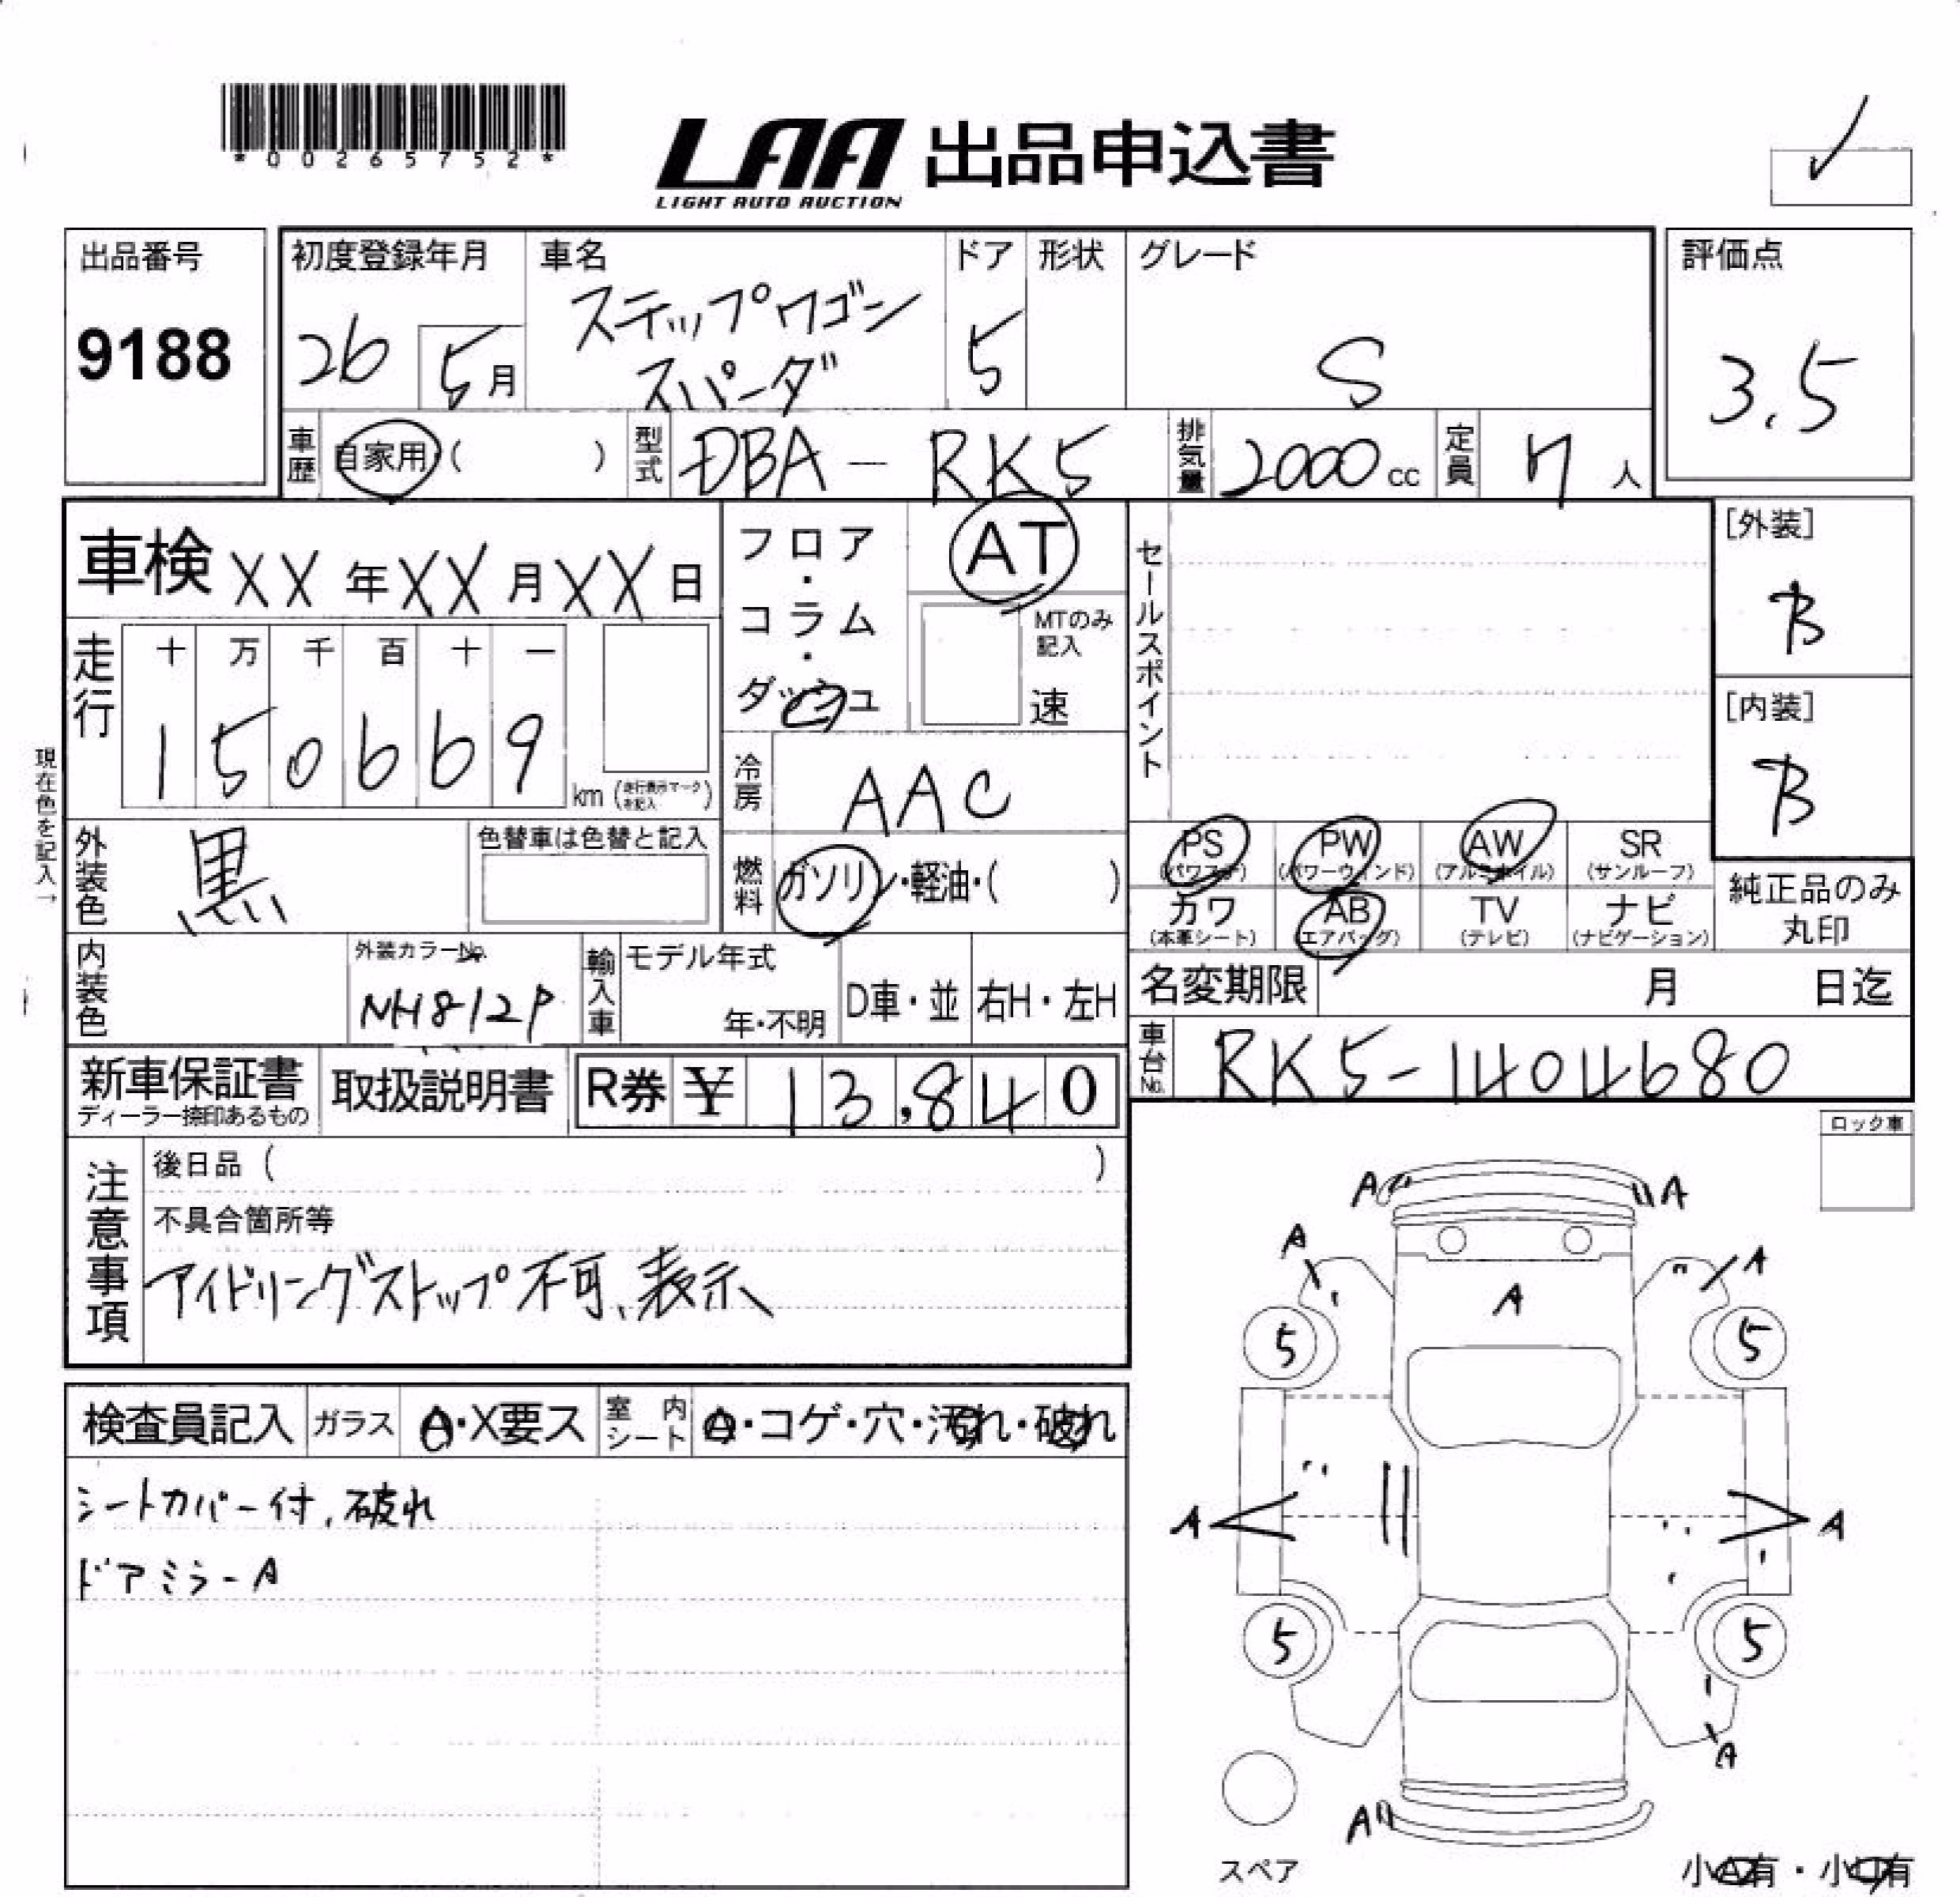 *00265752*
LAA 出品申込書
LIGHT AUTO AUCTION
出品番号
9188
初度登録年月
26 5月
車名
ステップワゴン
スパーダ
ドア
5
形状
グレード
S
評価点
3.5
車歴 自家用 ( )
型式 DBA-RK5
排気量 2000cc
定員 7人
車検 XX年XX月XX日
フロア・コラム・ダッシュ
AT
MTのみ記入
速
セールスポイント
[外装]
B
[内装]
B
走行
十 万 千 百 十 一
1 5 0 6 6 9 km (走行表示マークを記入)
現在色を記入→
冷房 AAC
外装色 黒
色替車は色替と記入
燃料 ガソリン・軽油・( )
PS (パワステ)
PW (パワーウインド)
AW (アルミホイル)
SR (サンルーフ)
カワ (本革シート)
AB (エアバッグ)
TV (テレビ)
ナビ (ナビゲーション)
純正品のみ
丸印
内装色
外装カラーNo.
NH812P
輸入車
モデル年式
年・不明
D車・並
右H・左H
名変期限 月 日迄
車台No. RK5-1404680
新車保証書
ディーラー捺印あるもの
取扱説明書
R券 ¥ 13,840
ロック車
注意事項
後日品 ( )
不具合箇所等
アイドリングストップ不可、表示
検査員記入
ガラス A・X要ス
室内シート
・コゲ・穴・汚れ・破れ
シートカバー付、破れ
ドアミラーA
A A
A A
A
5 5
A A
5 5
A
A
スペア
小A有・小U有